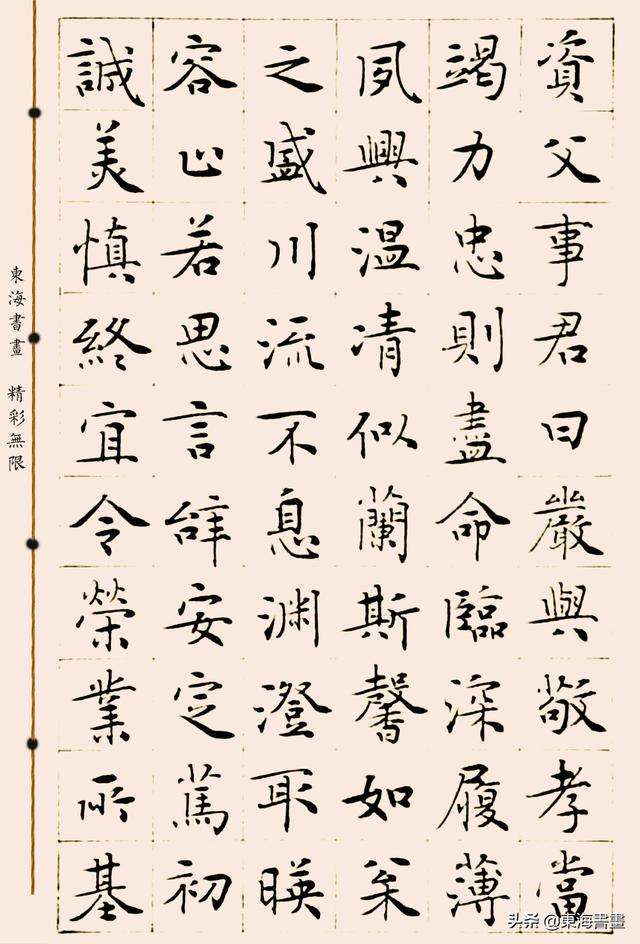 資父事君曰嚴與敬孝當
竭力忠則盡命臨深履薄
夙興溫凊似蘭斯馨如枀
之盛川流不息渊澄取暎
容止若思言辞安定篤初
誠美慎終宜令榮業所基
東海書畫 精彩無限
头条 @東海書畫